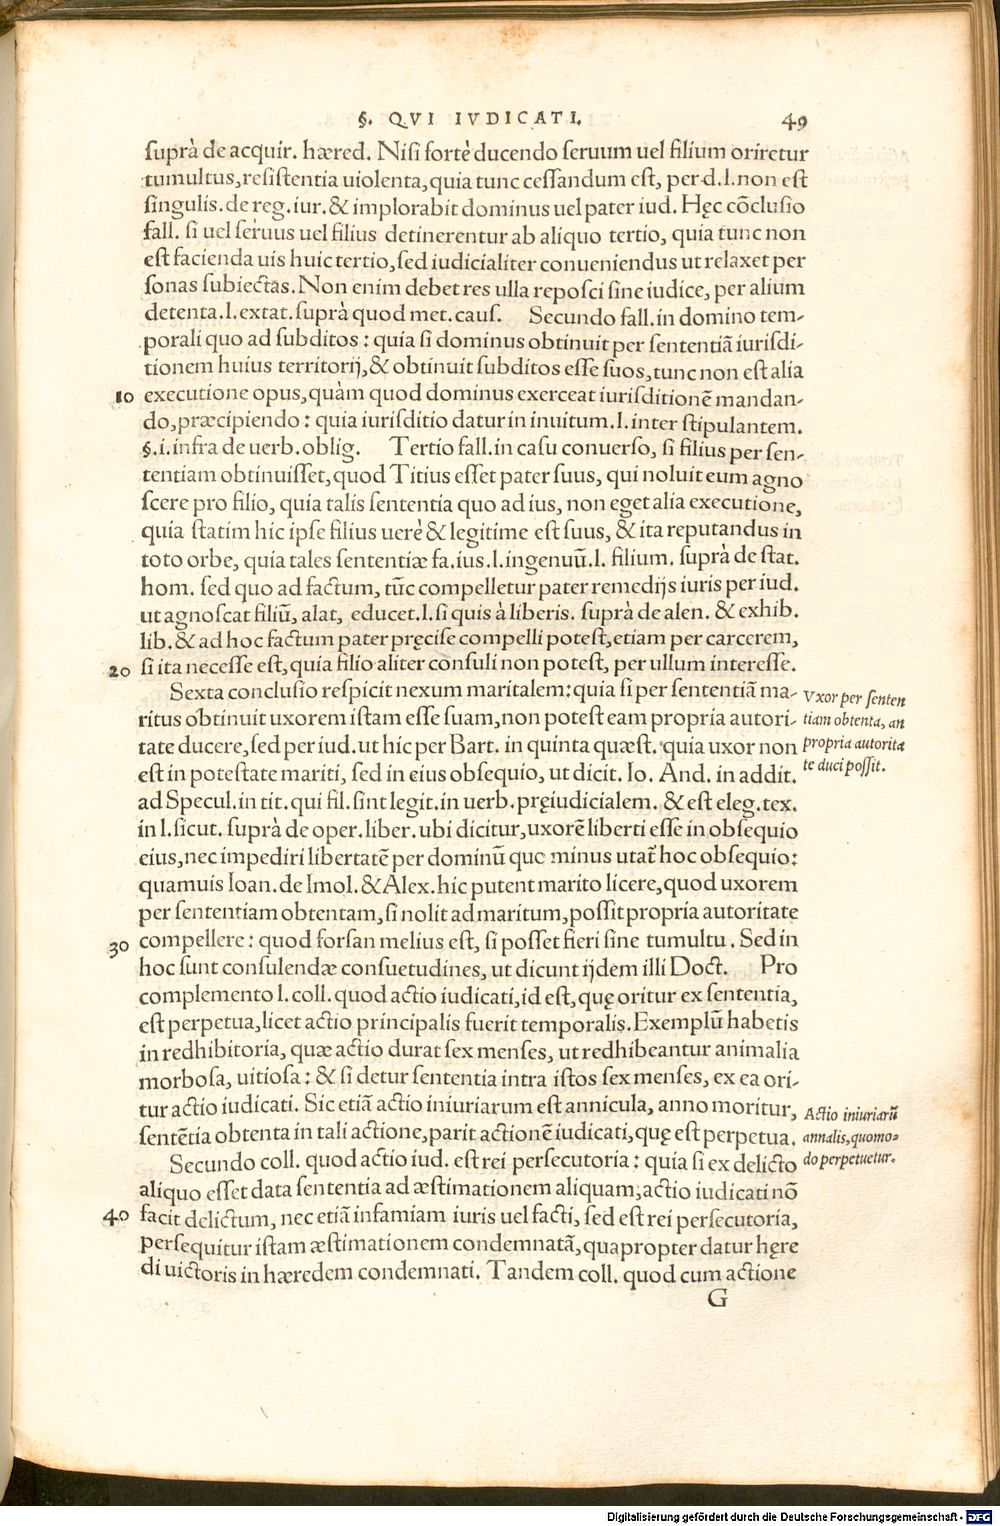 §. QVI IVDICATI. 49
suprà de acquir. hæred. Nisi fortè ducendo seruum uel filium oriretur
tumultus, resistentia uiolenta, quia tunc cessandum est, per d. l. non est
singulis. de reg. iur. & implorabit dominus uel pater iud. Hęc cõclusio
fall. si uel seruus uel filius detinerentur ab aliquo tertio, quia tunc non
est facienda uis huic tertio, sed iudicialiter conueniendus ut relaxet per
sonas subiectas. Non enim debet res ulla reposci sine iudice, per alium
detenta. l. extat. suprà quod met. caus. Secundo fall. in domino tem-
porali quo ad subditos: quia si dominus obtinuit per sententiã iurisdi-
tionem huius territorij, & obtinuit subditos esse suos, tunc non est alia
10 executione opus, quàm quod dominus exerceat iurisditionẽ mandan-
do, præcipiendo: quia iurisditio datur in inuitum. l. inter stipulantem.
§. i. infra de uerb. oblig. Tertio fall. in casu conuerso, si filius per sen-
tentiam obtinuisset, quod Titius esset pater suus, qui noluit eum agno
scere pro filio, quia talis sententia quo ad ius, non eget alia executione,
quia statim hic ipse filius uerè & legitime est suus, & ita reputandus in
toto orbe, quia tales sententiæ fa. ius. l. ingenuũ. l. filium. suprà de stat.
hom. sed quo ad factum, tũc compelletur pater remedijs iuris per iud.
ut agnoscat filiũ, alat, educet. l. si quis à liberis. suprà de alen. & exhib.
lib. & ad hoc factum pater pręcise compelli potest, etiam per carcerem,
20 si ita necesse est, quia filio aliter consuli non potest, per ullum interesse.
Sexta conclusio respicit nexum maritalem: quia si per sententiã ma-
ritus obtinuit uxorem istam esse suam, non potest eam propria autori-
tate ducere, sed per iud. ut hic per Bart. in quinta quæst. quia uxor non
est in potestate mariti, sed in eius obsequio, ut dicit. Io. And. in addit.
ad Specul. in tit. qui fil. sint legit. in uerb. pręiudicialem. & est eleg. tex.
in l. sicut. suprà de oper. liber. ubi dicitur, uxorẽ liberti esse in obsequio
eius, nec impediri libertatẽ per dominũ quo minus utat̃ hoc obsequio:
quamuis Ioan. de Imol. & Alex. hic putent marito licere, quod uxorem
per sententiam obtentam, si nolit ad maritum, possit propria autoritate
30 compellere: quod forsan melius est, si posset fieri sine tumultu. Sed in
hoc sunt consulendæ consuetudines, ut dicunt ijdem illi Doct. Pro
complemento l. coll. quod actio iudicati, id est, quę oritur ex sententia,
est perpetua, licet actio principalis fuerit temporalis. Exemplũ habetis
in redhibitoria, quæ actio durat sex menses, ut redhibeantur animalia
morbosa, uitiosa: & si detur sententia intra istos sex menses, ex ea ori-
tur actio iudicati. Sic etiã actio iniuriarum est annicula, anno moritur,
sentẽtia obtenta in tali actione, parit actionẽ iudicati, quę est perpetua.
Secundo coll. quod actio iud. est rei persecutoria: quia si ex delicto
aliquo esset data sententia ad æstimationem aliquam, actio iudicati nõ
40 facit delictum, nec etiã infamiam iuris uel facti, sed est rei persecutoria,
persequitur istam æstimationem condemnatã, quapropter datur hęre
di uictoris in hæredem condemnati. Tandem coll. quod cum actione
G
Vxor per senten
tiam obtenta, an
propria autorita
te duci possit.
Actio iniuriarũ
annalis, quomo-
do perpetuetur.
Digitalisierung gefördert durch die Deutsche Forschungsgemeinschaft - DFG